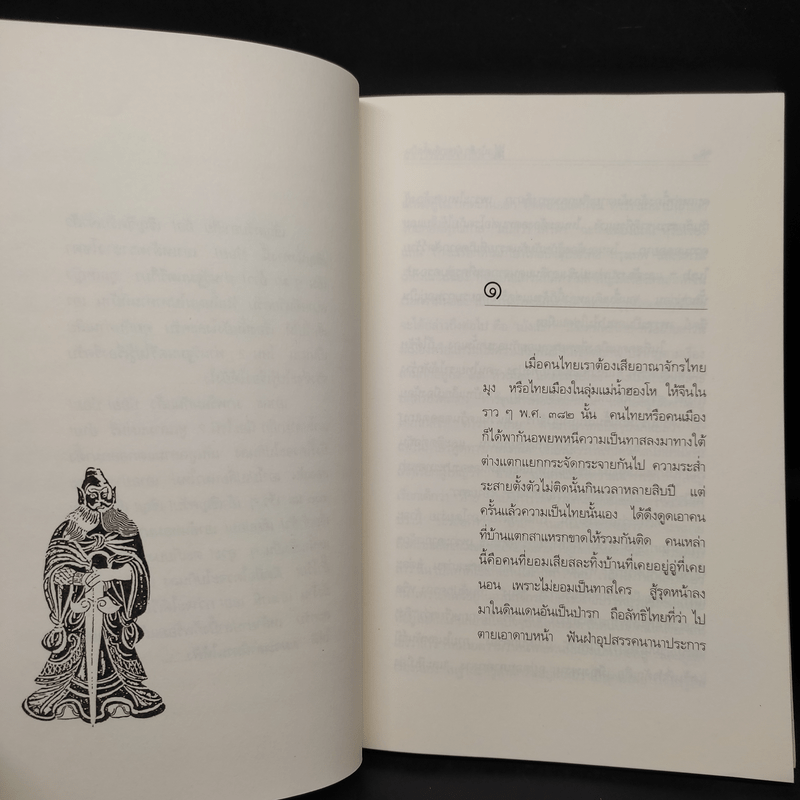 ๑
เมื่อคนไทยเราต้องเสียอาณาจักรไทย
มุง หรือไทยเมืองในลุ่มแม่น้ำฮองโห ให้จีนใน
ราว ๆ พ.ศ. ๓๘๒ นั้น คนไทยหรือคนเมือง
ก็ได้พากันอพยพหนีความเป็นทาสลงมาทางใต้
ต่างแตกแยกกระจัดกระจายกันไป ความระส่ำ
ระสายตั้งตัวไม่ติดนั้นกินเวลาหลายสิบปี แต่
ครั้นแล้วความเป็นไทยนั้นเอง ได้ดึงดูดเอาคน
ที่บ้านแตกสาแหรกขาดให้รวมกันติด คนเหล่า
นี้คือคนที่ยอมเสียสละทิ้งบ้านที่เคยอยู่อู่ที่เคย
นอน เพราะไม่ยอมเป็นทาสใคร สู้รุดหน้าลง
มาในดินแดนอันเป็นป่ารก ถือลัทธิไทยที่ว่า ไป
ตายเอาดาบหน้า ฟันฝ่าอุปสรรคนานาประการ